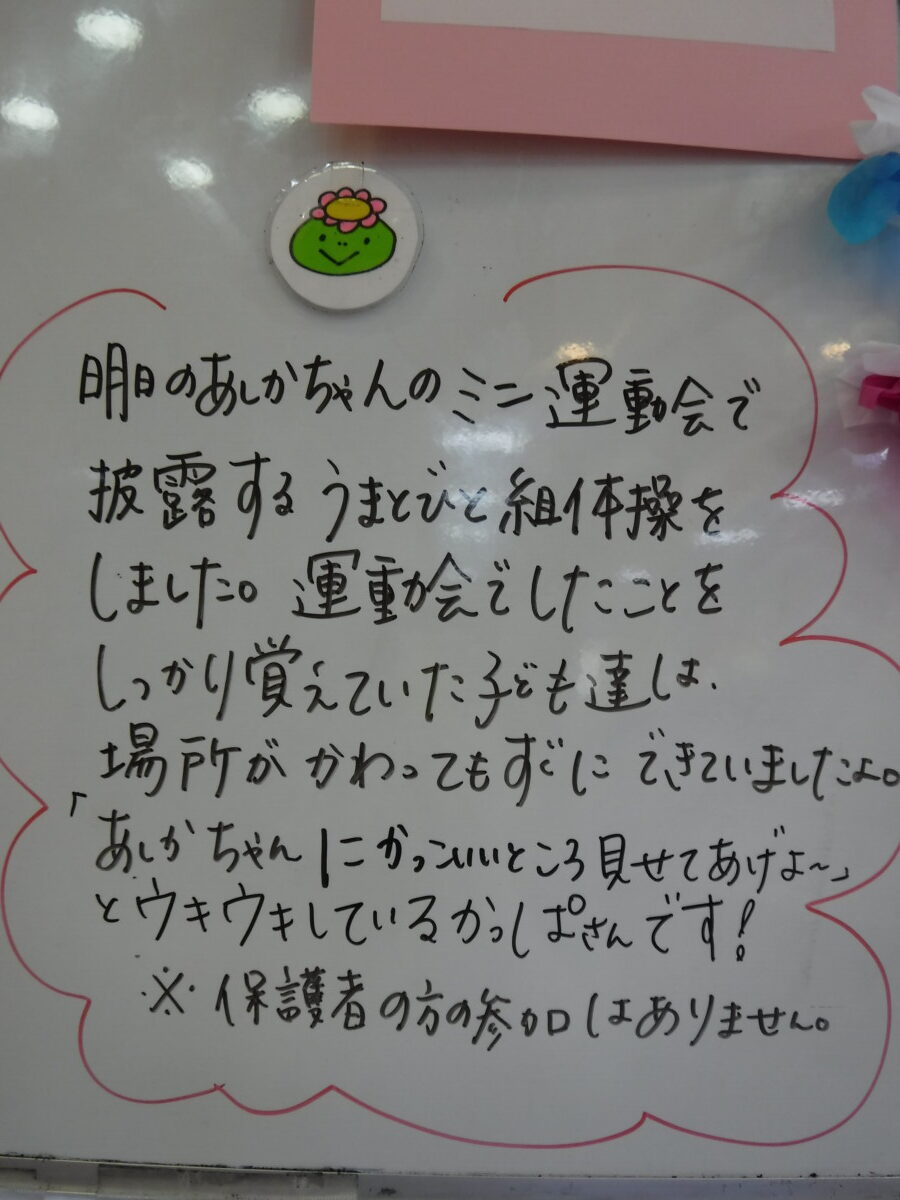 明日のあしかちゃんのミニ運動会で
披露するうまとびと組体操を
しました。運動会でしたことを
しっかり覚えていた子ども達は、
場所がかわってもすぐにできていましたよ。
「あしかちゃんにかっこいいところ見せてあげよ～」
とウキウキしているかっぱさんです!
※保護者の方の参加はありません。